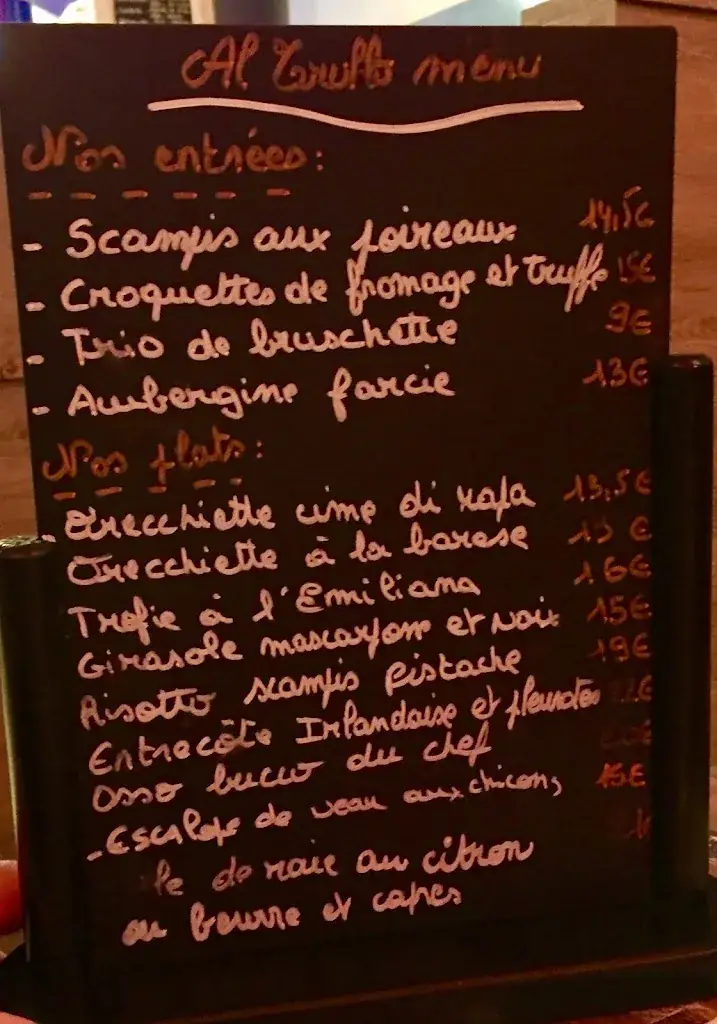 Al Trullo menu
Nos entrées:
- Scampis aux poireaux 14,5€
- Croquettes de fromage et truffe 15€
- Trio de bruschette 9€
- Aubergine farcie 13€
Nos plats:
- Orecchiette cime di rapa 13,5€
Orecchiette à la barese 15 €
Trofie à l'Emiliana 16€
Girasole mascarpone et noix 15€
Risotto scampis pistache 19€
Entrecôte Irlandaise et pleurotes
Osso bucco du chef
- Escalope de veau aux chicons 15€
de raie au citron
au beurre et capres